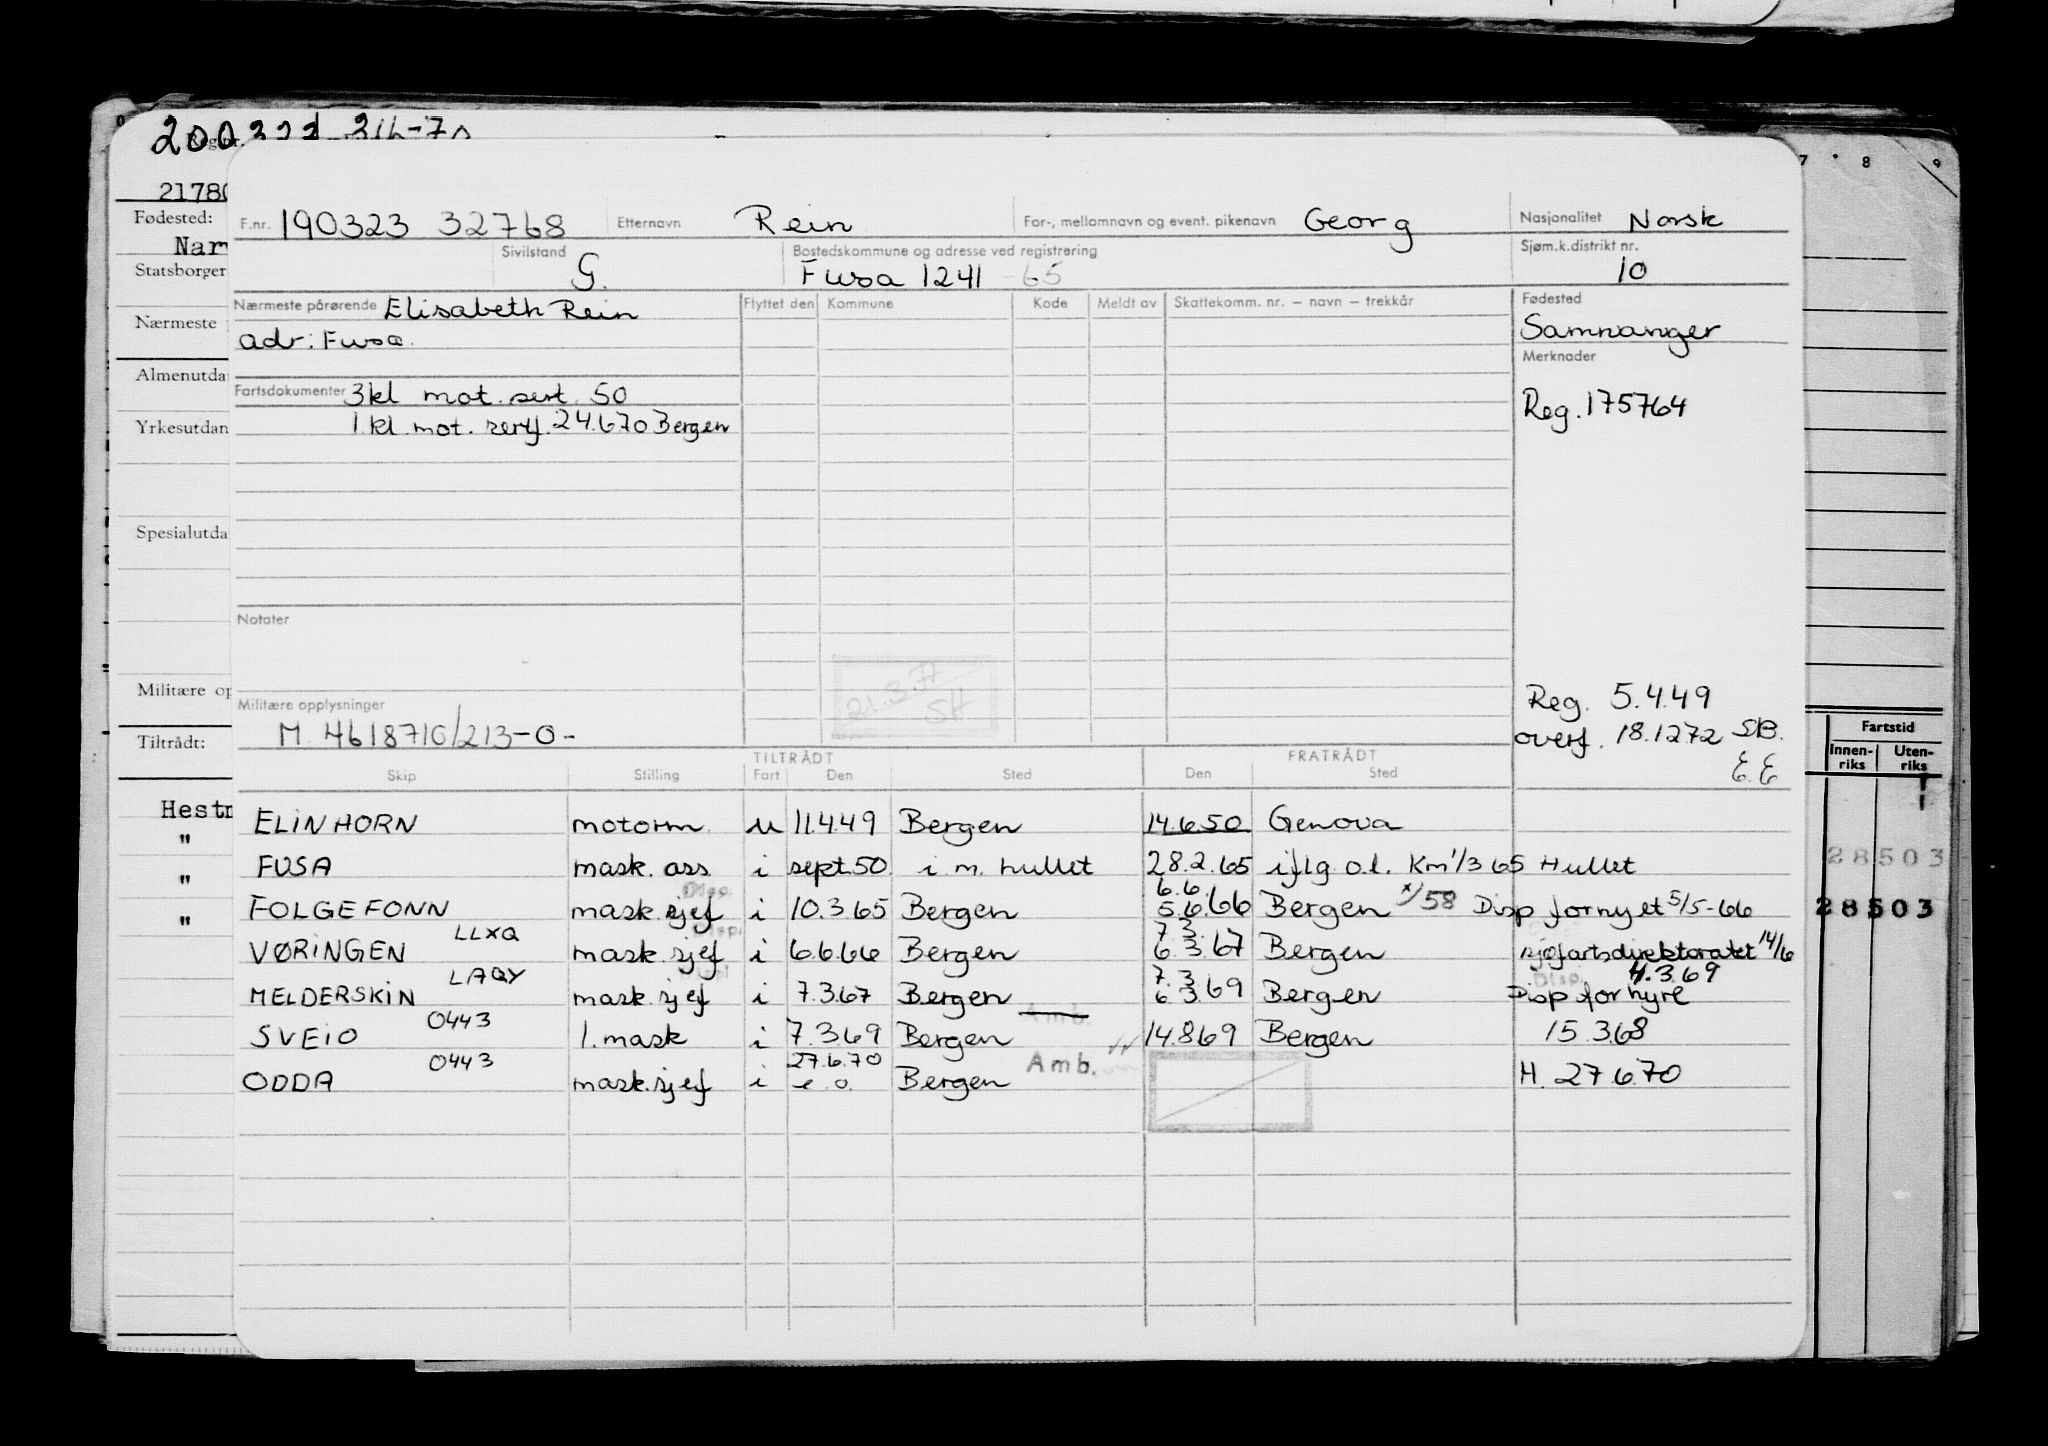 200322
21780
Fødested:
Nar
Statsborger
Nærmeste
Almenutda
Yrkesutdan
Spesialutda
Militære op
Tiltrådt:
Hestm
"
"
"
7 8 9
Fartstid
Innen-riks Uten-riks
28503
28503
F.nr. 190323 32768 Etternavn Rein For-, mellomnavn og event. pikenavn Georg Nasjonalitet Norsk
Sivilstand G. Bostedskommune og adresse ved registrering Fusa 1241 -65 Sjøm.k.distrikt nr. 10
Nærmeste pårørende Elisabeth Rein Flyttet den Kommune Kode Meldt av Skattekomm. nr. – navn – trekkår Fødested
adr: Fusa. Samnanger
Merknader
Fartsdokumenter 3kl mot. sert. 50 Reg. 175764
1 kl. mot. sertf. 24.6.70 Bergen
Notater
21.3.77
SH
Militære opplysninger Reg. 5.4.49
M. 4618710/213-0- overf. 18.12 72 SB.
E.E
TILTRÅDT FRATRÅDT
Skip Stilling Fart Den Sted Den Sted
ELIN HORN motorm. u 11.4.49 Bergen 14.6.50 Genova
FUSA mask. ass i sept.50 i m. hullet 28.2.65 iflg o.l. Km 1/3 65 Hullet
Disp.
6.6.
FOLGEFONN mask. sjef i 10.3.65 Bergen 5.6.66 Bergen x/58 Disp fornyet 5/5-66
LLXQ Disp. 7.3.
VØRINGEN mask. sjef i 6.6.66 Bergen 6.3.67 Bergen sjøfartsdirektoratet 14/6
LAQY 7.3 Disp. 4.3.69
MELDERSKIN mask. sjef i 7.3.67 Bergen 6.3.69 Bergen Disp for hyre
O443 Amb.
SVEIO 1. mask i 7.3.69 Bergen 14.8.69 Bergen 15.3.68
O443 27.6.70 Amb.
ODDA mask. sjef i e.o. Bergen H. 27.6.70